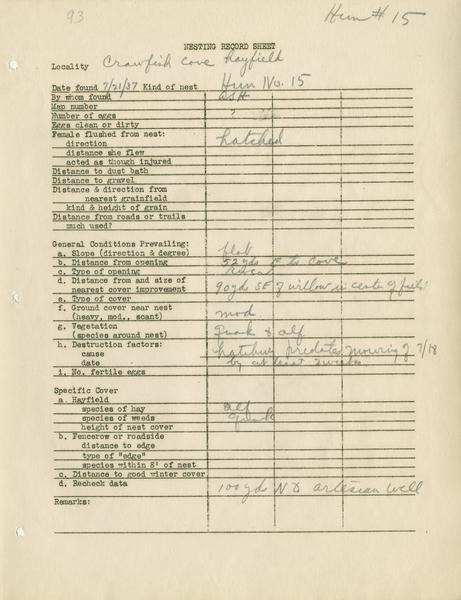 93
Hun # 15
NESTING RECORD SHEET
Locality Crawfish Cove hayfield
Date found 7/21/37 Kind of nest Hun No. 15
By whom found
Map number
Number of eggs ?
Eggs clean or dirty
Female flushed from nest: hatched
direction
distance she flew
acted as though injured
Distance to dust bath
Distance to gravel
Distance & direction from
nearest grainfield
kind & height of grain
Distance from roads or trails
much used?
General Conditions Prevailing:
a. Slope (direction & degree) flat
b. Distance from opening 52 yds E to cove
c. Type of opening
d. Distance from and size of
nearest cover improvement 90 yds SE of willow in center of field
e. Type of cover
f. Ground cover near nest mod
(heavy, mod., scant)
g. Vegetation Quack & alf.
(species around nest)
h. Destruction factors: hatching predates mowing of 7/18
cause by at least 2 weeks
date
i. No. fertile eggs
Specific Cover
a. Hayfield
species of hay alf
species of weeds quack
height of nest cover
b. Fencerow or roadside
distance to edge
type of "edge"
species within 8' of nest
c. Distance to good winter cover
d. Recheck data 100 yds N artesian well
Remarks: